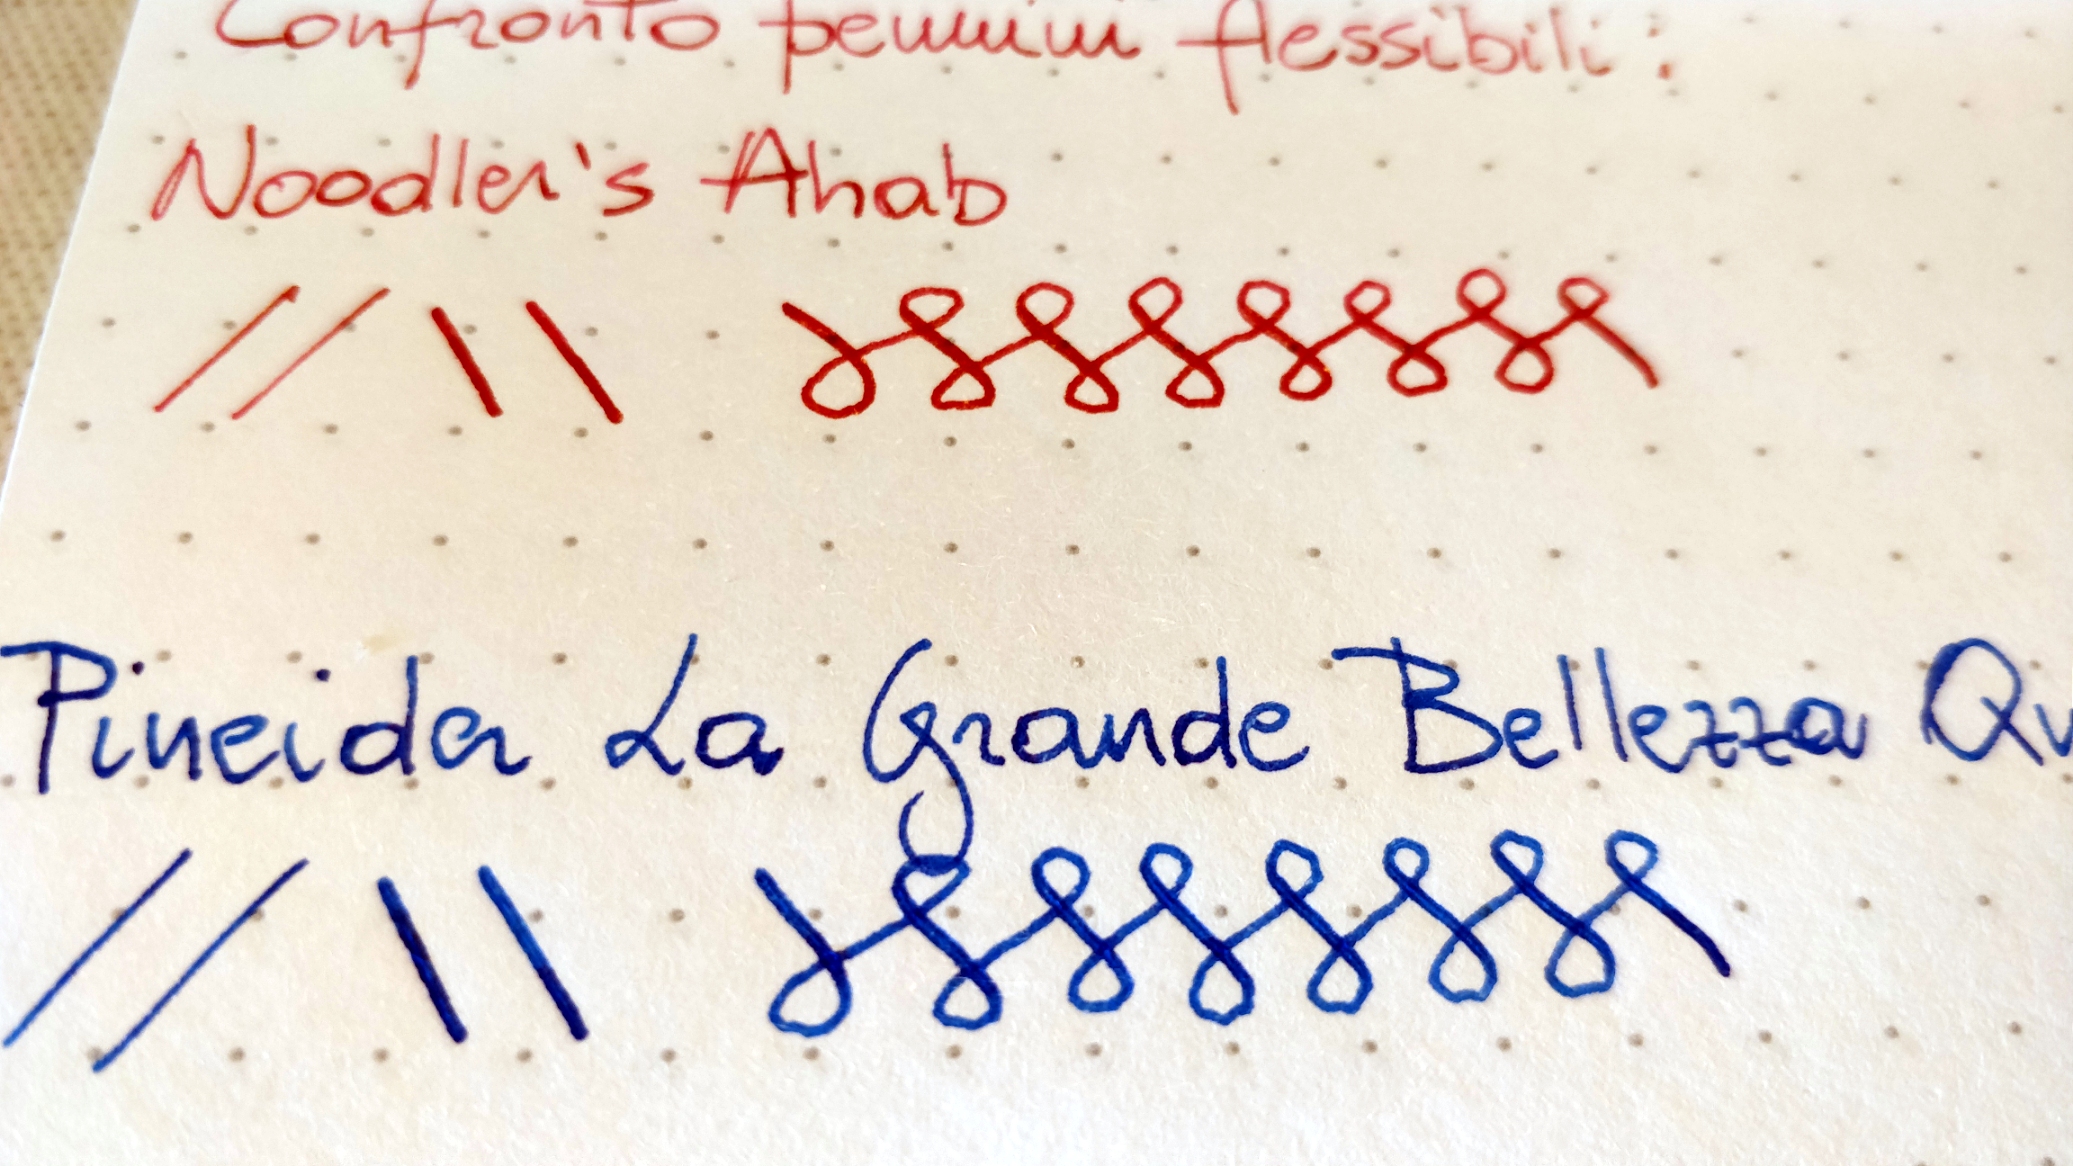 Confronto pennini flessibili:
Noodler's Ahab
Pineider La Grande Bellezza